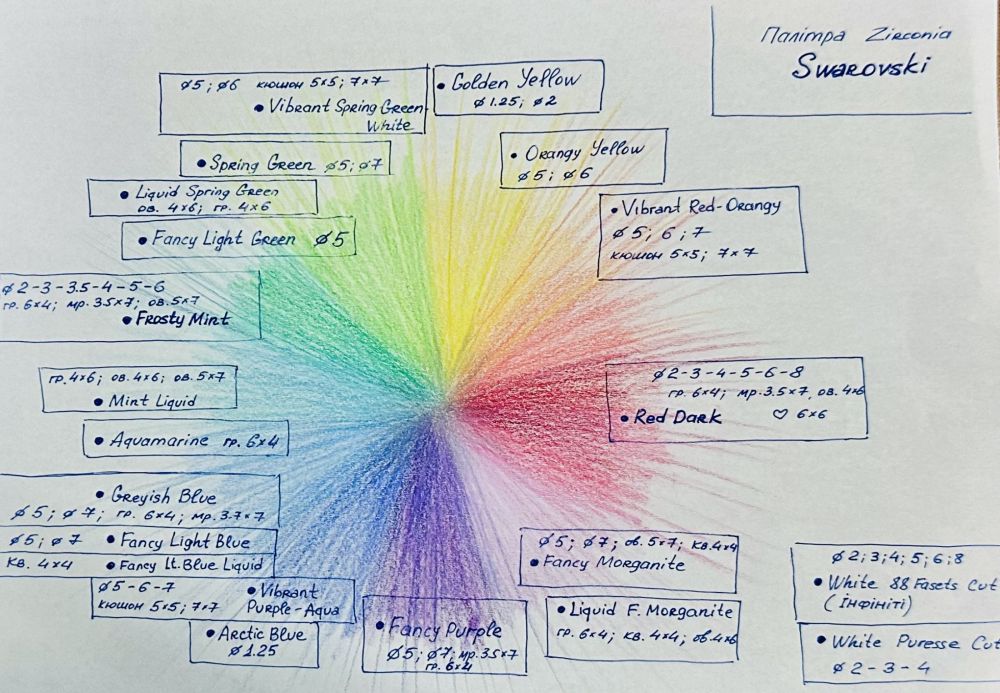 Палітра Zirconia
Swarovski
ø5; ø6 кюшон 5×5; 7×7
• Vibrant Spring Green-
White
• Golden Yellow
ø 1.25; ø2
• Spring Green ø5; ø7
• Orangy Yellow
ø5; ø6
• Liquid Spring Green
ов. 4×6; гр. 4×6
• Vibrant Red-Orangy
ø 5; 6; 7
кюшон 5×5; 7×7
• Fancy Light Green ø5
ø2-3-3.5-4-5-6
гр. 6×4; мр. 3.5×7; ов. 5×7
• Frosty Mint
гр. 4×6; ов. 4×6; ов. 5×7
• Mint Liquid
ø2-3-4-5-6-8
гр. 6×4; мр. 3.5×7, ов. 4×6
• Red Dark ♡ 6×6
• Aquamarine гр. 6×4
• Greyish Blue
ø5; ø7; гр. 6×4; мр. 3.7×7
ø5; ø7 • Fancy Light Blue
кв. 4×4 • Fancy Lt. Blue Liquid
ø5-6-7 • Vibrant
кюшон 5×5; 7×7 Purple-Aqua
• Arctic Blue
ø 1.25
• Fancy Purple
ø5; ø7; мр. 3.5×7
гр. 6×4
ø5; ø7; ов. 5×7; кв. 4×4
• Fancy Morganite
• Liquid F. Morganite
гр. 6×4; кв. 4×4; ов. 4×6
ø2; 3; 4; 5; 6; 8
• White 88 Fasets Cut
(Інфініті)
• White Puresse Cut
ø 2-3-4